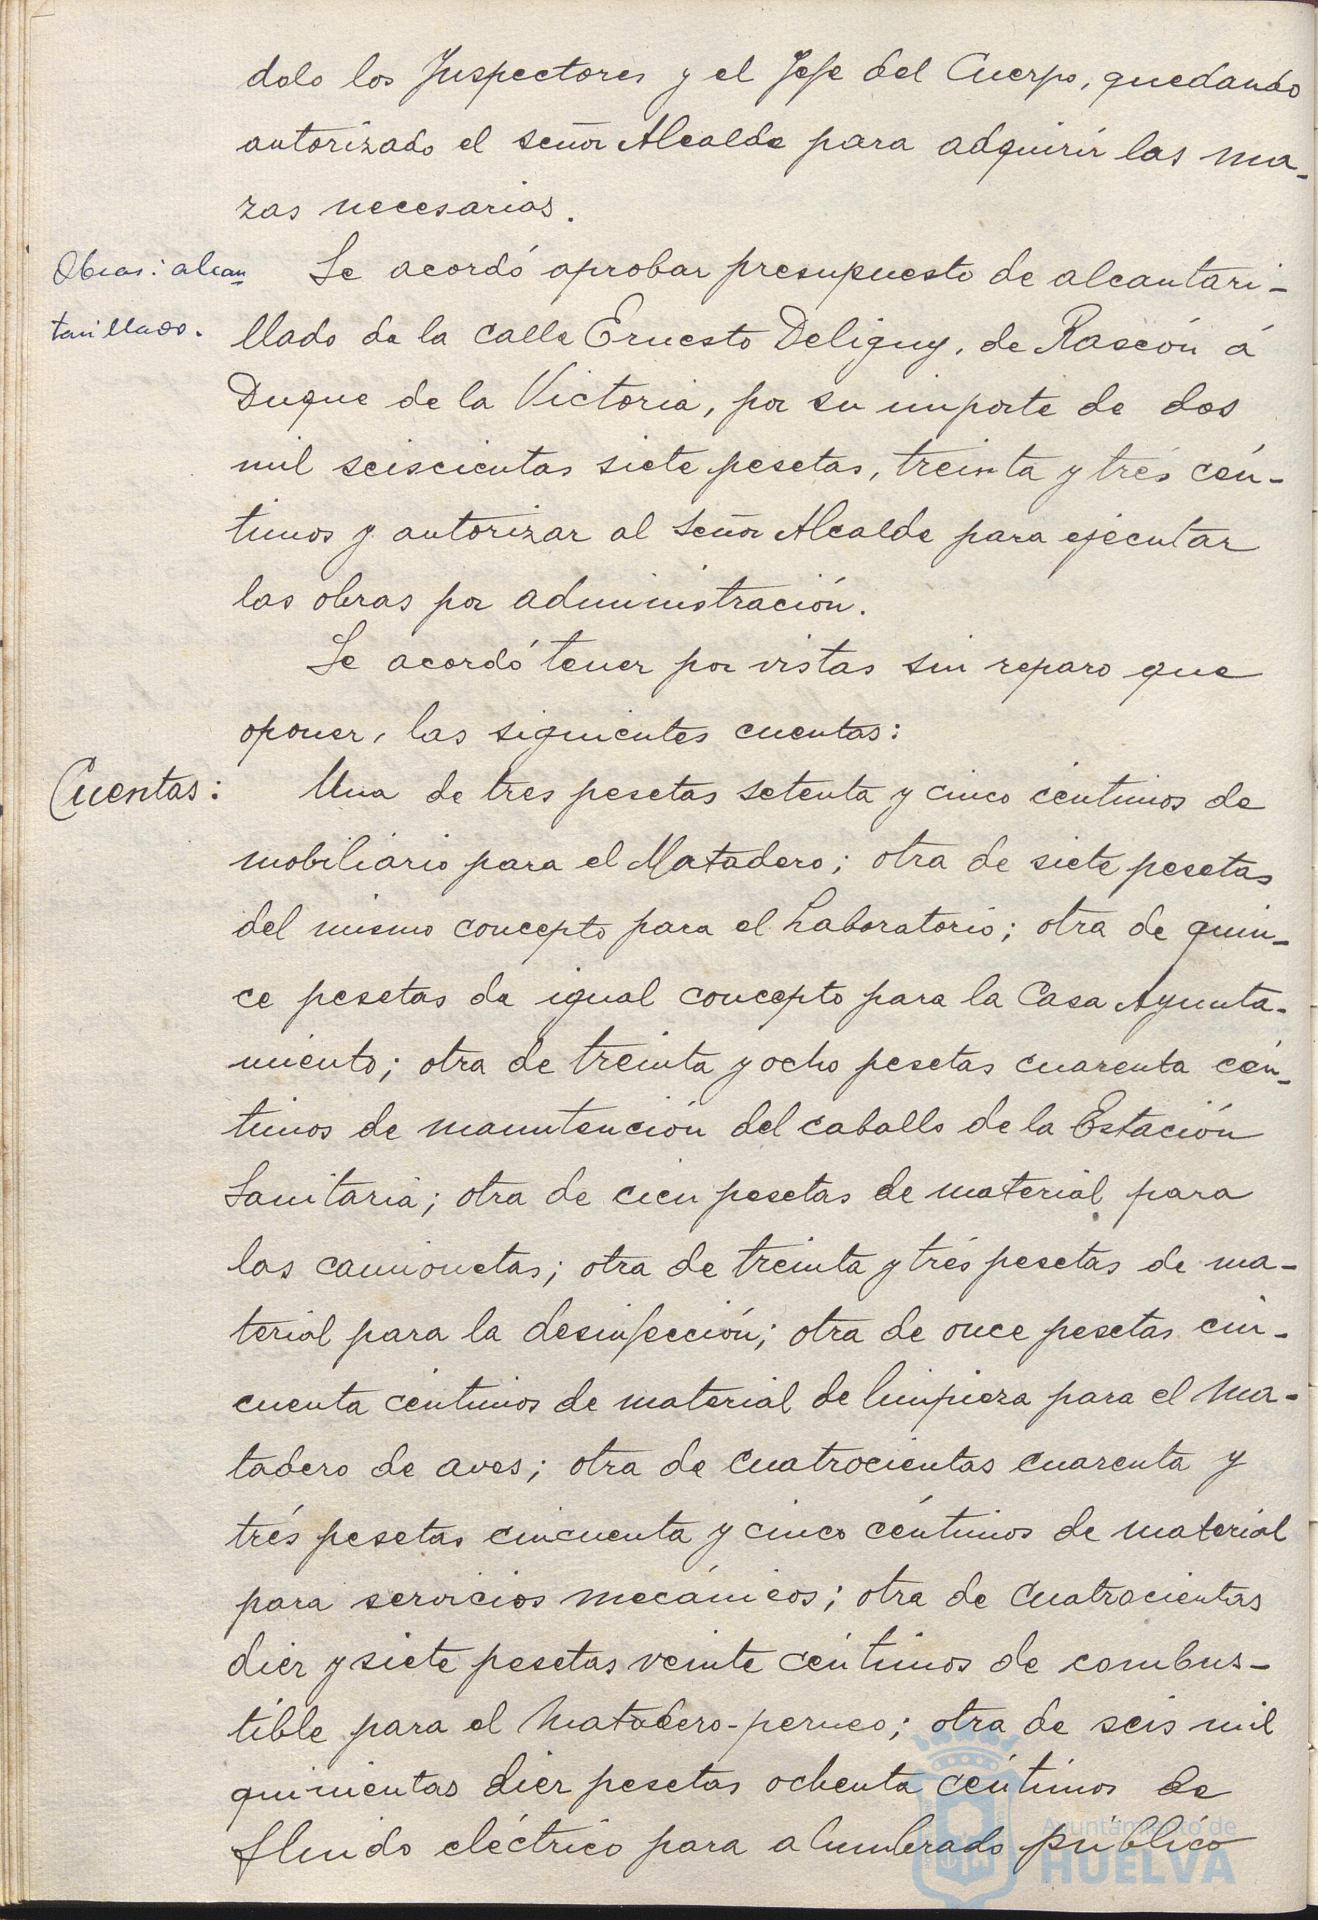 dolo los Inspectores y el Jefe del Cuerpo, quedando
autorizado el señor Alcalde para adquirir las ma-
zas necesarias.
Obras: alcan
tarillado.
Se acordó aprobar presupuesto de alcantari-
llado de la calle Ernesto Deligny, de Rascón á
Duque de la Victoria, por su importe de dos
mil seiscientas siete pesetas, treinta y trés cén-
timos y autorizar al señor Alcalde para ejecutar
las obras por administración.
Se acordó tener por vistas sin reparo que
oponer, las siguientes cuentas:
Cuentas:
Una de tres pesetas setenta y cinco céntimos de
mobiliario para el Matadero; otra de siete pesetas
del mismo concepto para el Laboratorio; otra de quin-
ce pesetas de igual concepto para la Casa Ayunta-
miento; otra de treinta y ocho pesetas cuarenta cén-
timos de manutención del caballo de la Estación
Sanitaria; otra de cien pesetas de material para
las camionetas; otra de treinta y trés pesetas de ma-
terial para la desinfección; otra de once pesetas cin-
cuenta céntimos de material de limpieza para el Ma-
tadero de aves; otra de cuatrocientas cuarenta y
trés pesetas cincuenta y cinco céntimos de material
para servicios mecánicos; otra de cuatrocientas
diez y siete pesetas veinte céntimos de combus-
tible para el Matadero-perneo; otra de seis mil
quinientas diez pesetas ochenta céntimos de
fluido eléctrico para alumbrado público
Ayuntamiento de
HUELVA